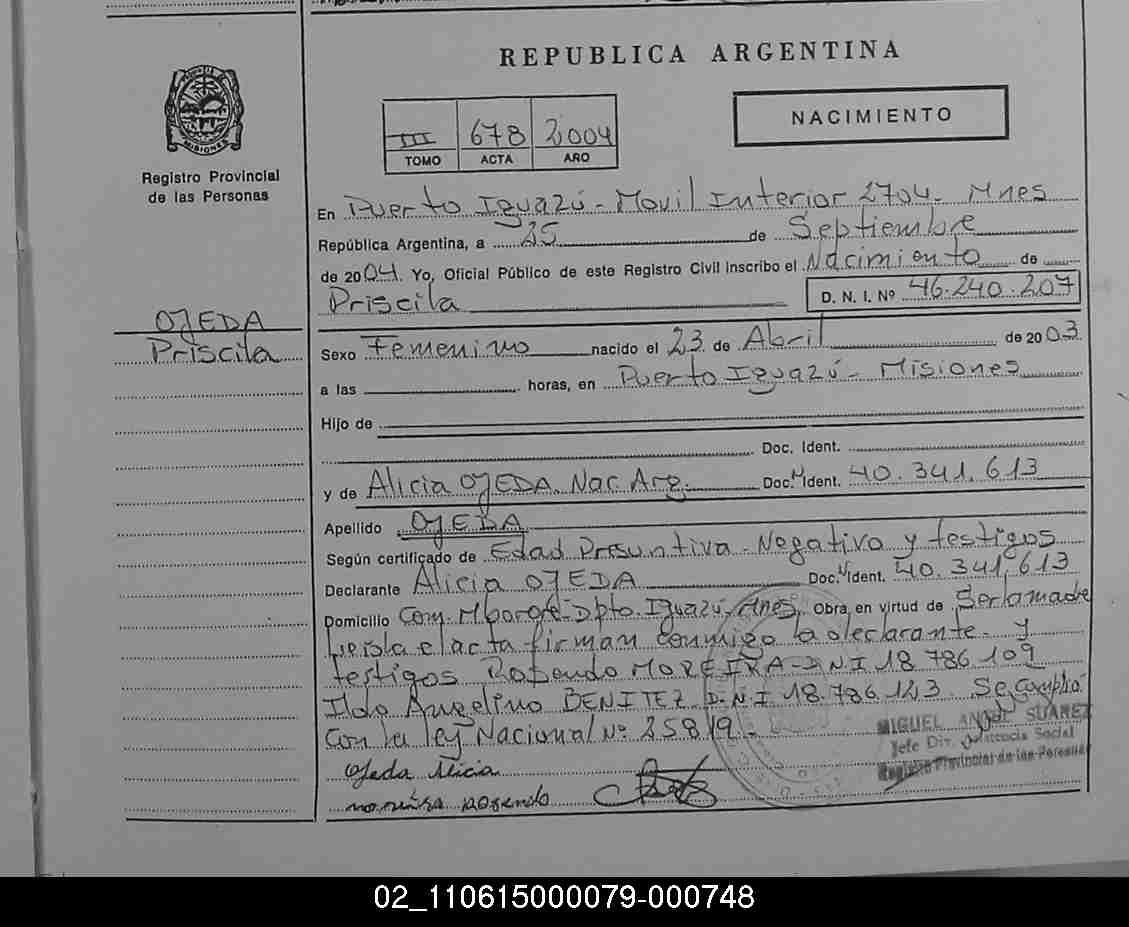 REPUBLICA ARGENTINA
NACIMIENTO
III 678 2004
TOMO ACTA AÑO
PROVINCIA DE MISIONES
Registro Provincial
de las Personas
OJEDA
Priscila
En Puerto Iguazú - Movil Interior 2704. Mnes
República Argentina, a 25 de Septiembre
de 2004. Yo, Oficial Público de este Registro Civil inscribo el Nacimiento de
Priscila D. N. I. Nº 46.240.207
Sexo Femenino nacido el 23 de Abril de 2003
a las horas, en Puerto Iguazú - Misiones
Hijo de
Doc. Ident.
y de Alicia OJEDA. Nac Arg. Doc. Ident. 40.341.613
Apellido OJEDA
Según certificado de Edad Presuntiva - Negativo y testigos
Declarante Alicia OJEDA Doc. Ident. 40.341.613
Domicilio Com. Dpto. Iguazú. Mnes. Obra, en virtud de Ser la madre
el acta firman conmigo la declarante y
testigos Rosendo MOREIRA - D.N.I 18 786 109
Ildo Angelino BENITEZ D.N.I 18.786.123. Se cumplió
con la ley Nacional Nº 25819.
Ojeda Alicia
MIGUEL ANGEL SUAREZ
Jefe Div. Asistencia Social
Registro Provincial de las Personas
02_110615000079-000748